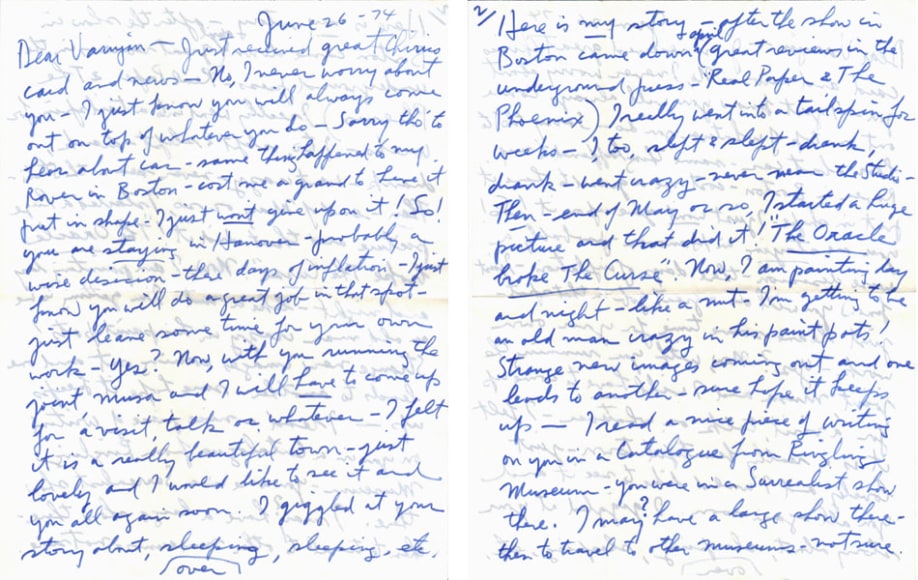 June 26 - 74
Dear Varujan - Just received great thinis
card and news - No, I never worry about
you - I just know you will always come
out on top of whatever you do - Sorry tho' to
hear about car - same thing happened to my
Rover in Boston - cost me a grand to have it
put in shape - I just wont give up on it! So!
you are staying in Hanover - probably a
wise decision - thes days of inflation - I just
know you will do a great job in that spot -
just leave some time for your own
work - yes? Now, with you running the
joint, musa and I will have to come up
for a visit, talk or whatever - I felt
it is a really beautiful town - just
lovely and I would like to see it and
you all again soon. I giggled at your
story about, sleeping, sleeping, etc.
(over)
2/ Here is my story - after the show in
Boston came down april (great reviews in the
underground press - Real Paper & The
Phoenix) I really went into a tailspin for
weeks - I, too, slept & slept - drank,
drank - went crazy - never near the Studio -
Then - end of May or so, I started a huge
picture and that did it! "The Oracle
broke The Curse". Now, I am painting day
and night - like a nut - I'm getting to be
an old man crazy in his paint pots!
Strange new images coming out and one
leads to another - sure hope it keeps
up — I read a nice piece of writing
on you in a Catalogue from Ringling
Museum - you were in a Surrealist show
there. I may? have a large show there -
then to travel to other museums - not sure.